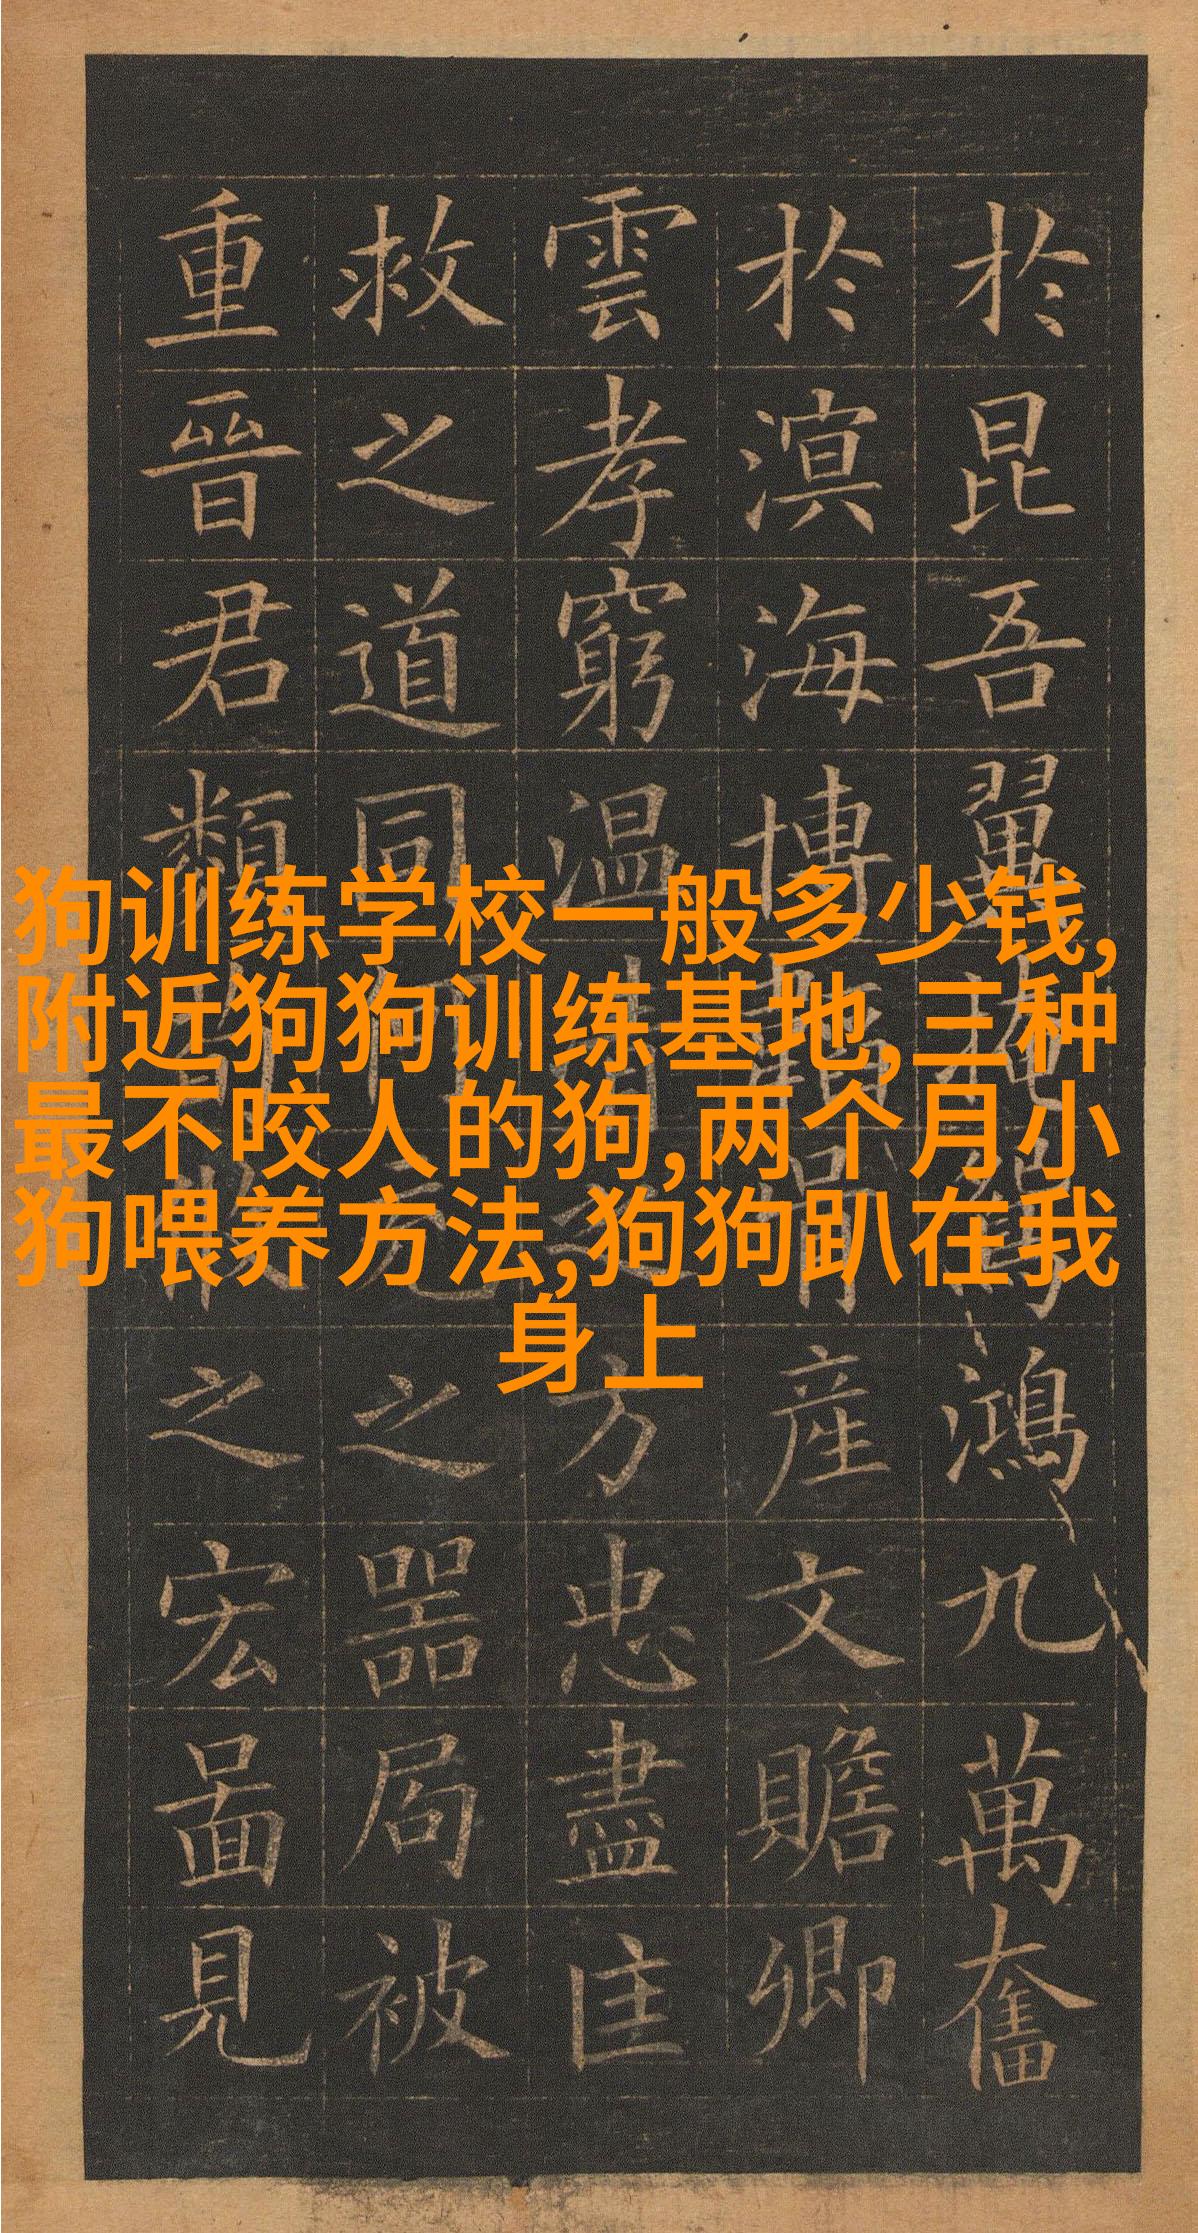 狗训练学校一般多少钱,
附近狗狗训练基地,三种
最不咬人的狗,两个月小
狗喂养方法,狗狗趴在我
身上
於昆吾翼鴻九萬奮
於溟海博產文贍卿
雲孝窮温之方忠盡匡
救之道同何充之器局被
重晉君類荀攸之宏啚見